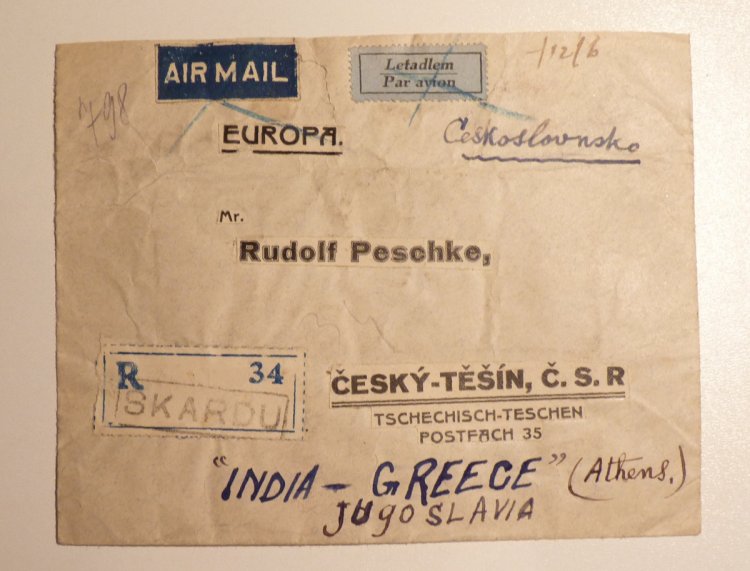 AIR MAIL
Letadlem
Par avion
-/12/6
798
EUROPA.
Českoslovnsko
Mr.
Rudolf Peschke,
R 34
SKARDU
ČESKÝ-TĚŠÍN, Č. S. R
TSCHECHISCH-TESCHEN
POSTFACH 35
"INDIA - GREECE" (Athens.)
JUGOSLAVIA